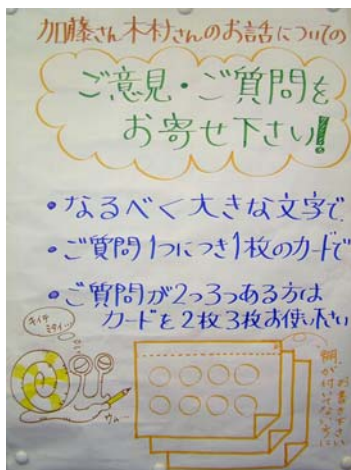 加藤さん木村さんのお話についての
ご意見・ご質問を
お寄せ下さい!
・なるべく大きな文字で
・ご質問1つにつき1枚のカードで
・ご質問が2つ3つある方は
カードを2枚3枚お使い下さい
キイテ
ミタイ…
ウム…
お書き下さい